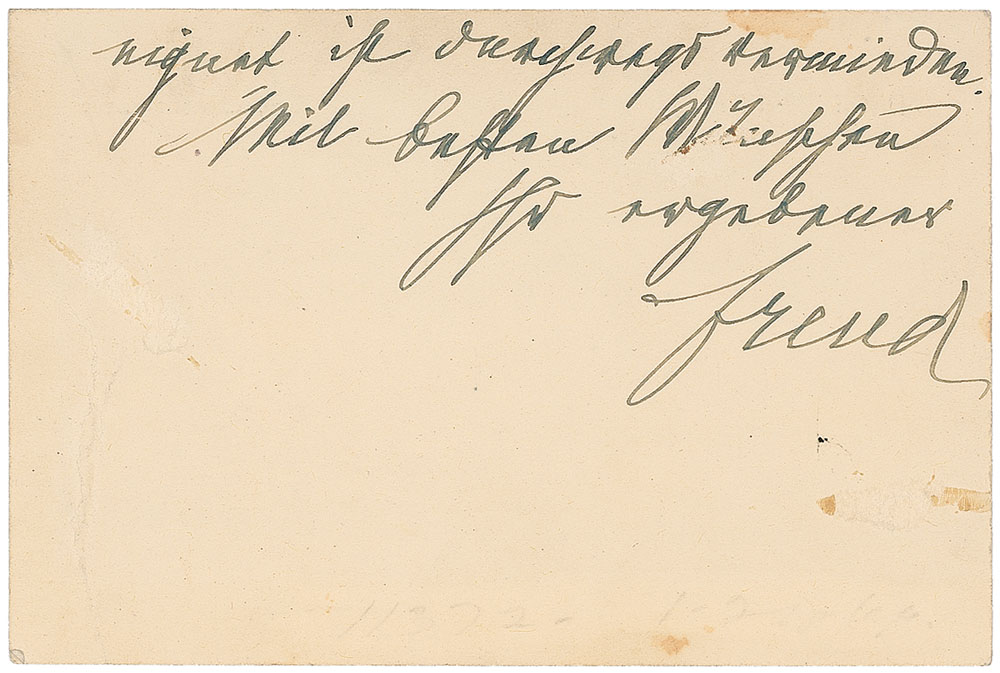 eignet ist durchwegs vermieden.
Mit besten Wünschen
Ihr ergebener
Freud